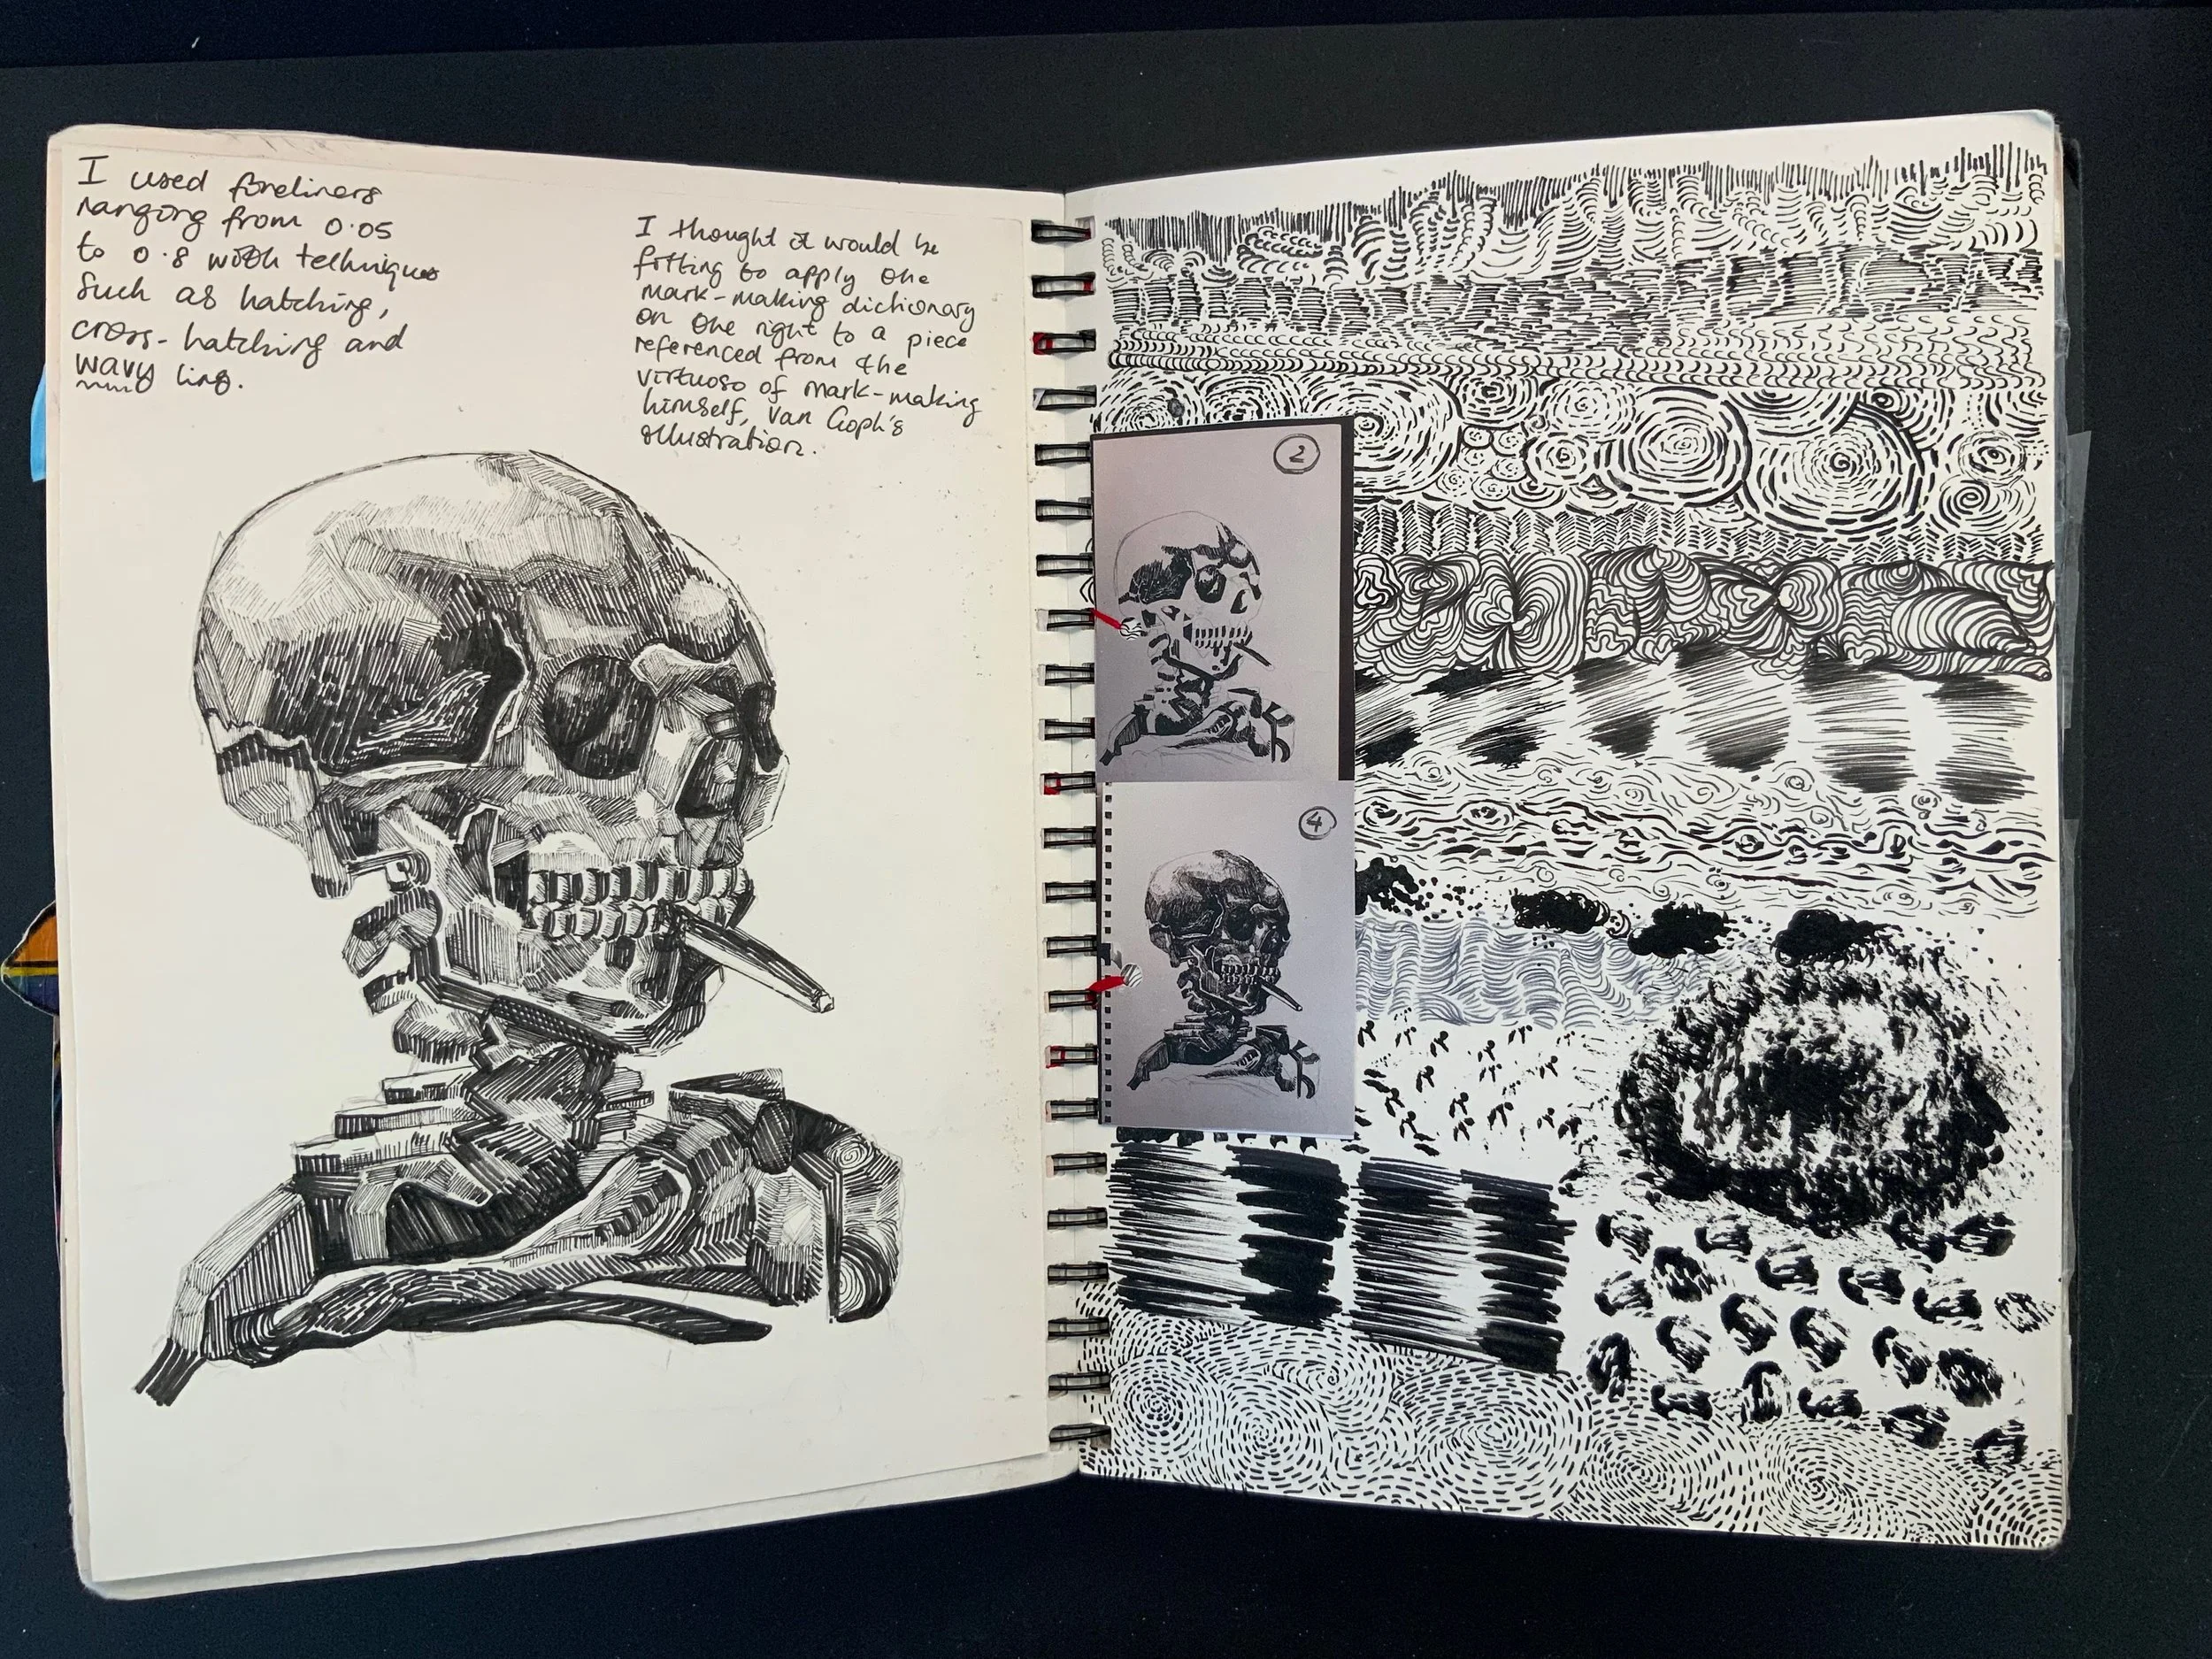 I used fineliners
ranging from 0.05
to 0.8 with techniques
such as hatching,
cross-hatching and
wavy line.
I thought it would be
fitting to apply the
mark-making dictionary
on the right to a piece
referenced from the
virtuoso of mark-making
himself, Van Goph's
illustration.
2
4